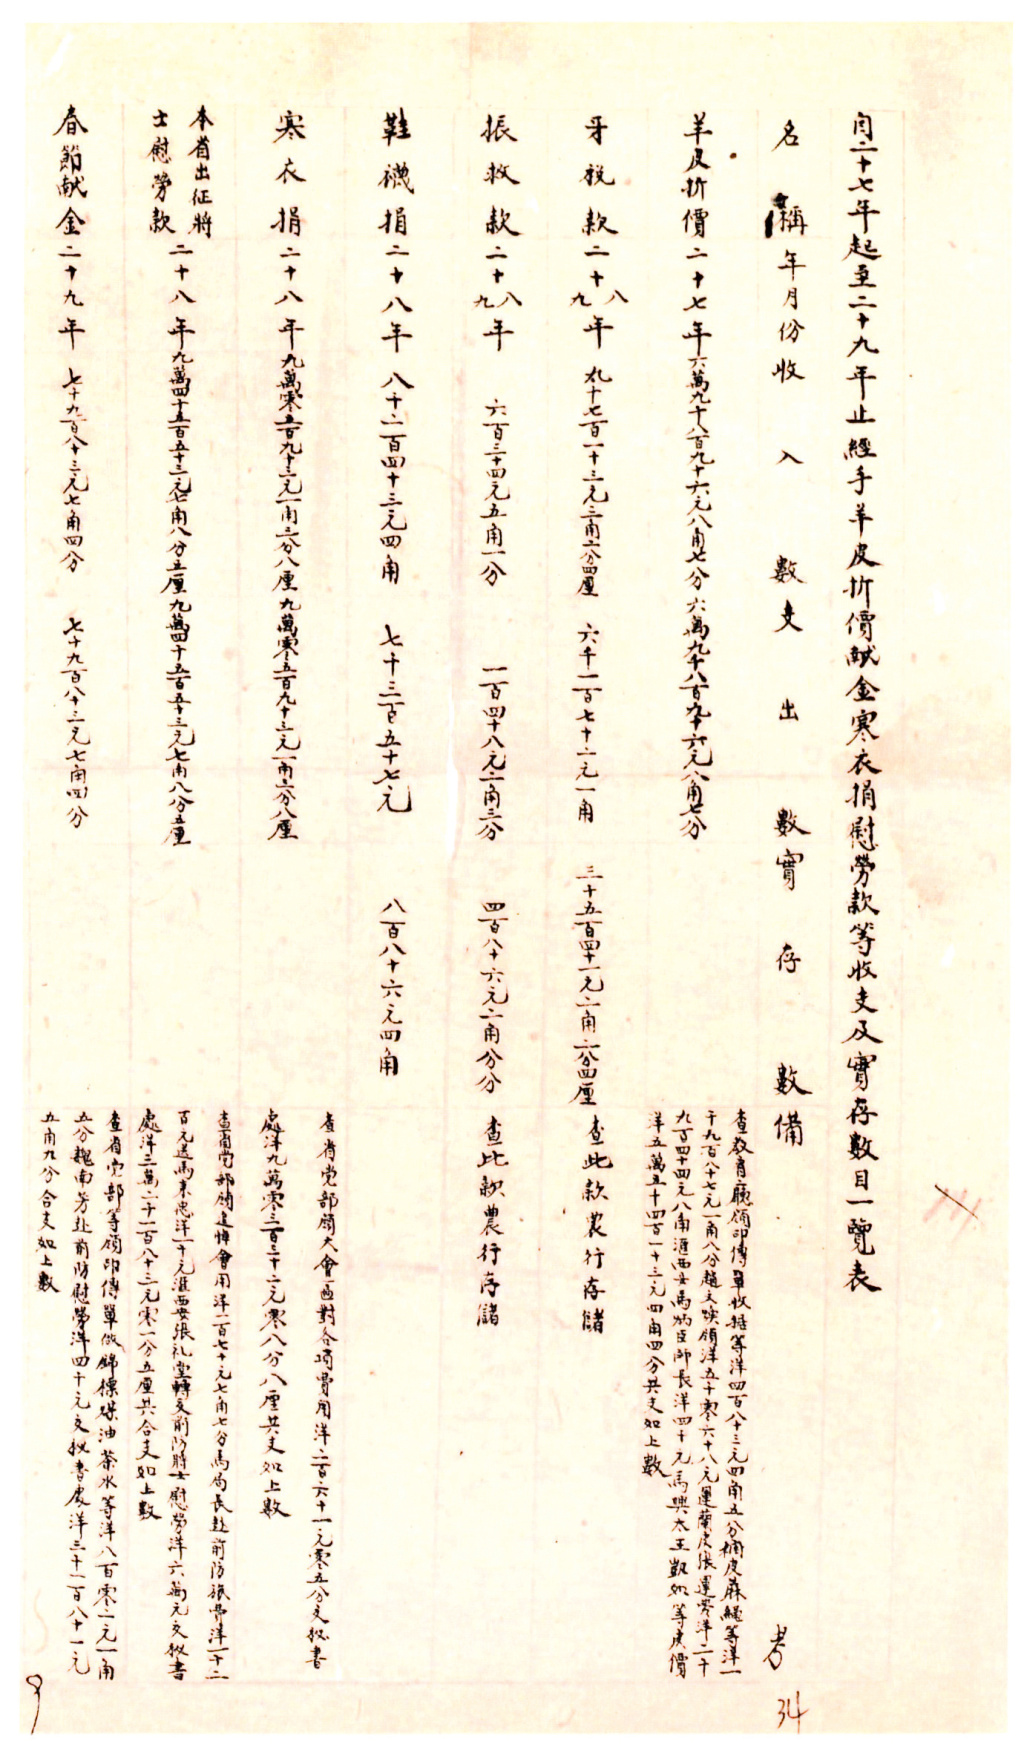 自二十七年起至二十九年止經手羊皮折價献金寒衣捐慰勞款等收支及實存數目一覽表
名稱 年月份 收入數 支出數 實存數 備考
羊皮折價 二十七年 六萬九千八百九十六元八角七分 六萬九千八百九十六元八角七分
查教育廳領印傳單收据等洋四百八十三元四角五分捆皮蔴繩等洋一
千九百八十七元一角八分趙文焕領洋五千零六十八元運蘭皮張運費洋二千
九百四十四元八角滙西安馬炳臣師長洋四千元馬興太王凱如等皮價
洋五萬五千四百一十三元四角四分共支如上數
牙税款 二十八九年 九千七百一十三元三角六分四厘 六千一百七十二元一角 三千五百四十一元二角六分四厘 查此款農行存儲
振救款 二十八九年 六百三十四元五角一分 一百四十八元二角三分 四百八十六元二角分分 查此款農行存儲
鞋襪捐 二十八年 八千二百四十三元四角 七千三百五十七元 八百八十六元四角
寒衣捐 二十八年 九萬零五百九十三元一角三分八厘 九萬零五百九十三元一角六分八厘
查省党部領大會函對各項費用洋二百六十一元零五分交秘書
處洋九萬零三百三十二元零八分八厘共支如上數
本省出征將
士慰勞款 二十八年 九萬四千五百五十三元七角八分五厘 九萬四千五百五十三元七角八分五厘
查省党部領追悼會用洋二百七十元七角七分馬局長赴前防旅費洋一千二
百元送馬秉忠洋一千元滙西安張礼堂轉交前防將士慰勞洋六萬元交秘書
處洋三萬二千一百八十三元零一分五厘共合支如上數
春節献金 二十九年 七千九百八十三元七角四分 七千九百八十三元七角四分
查省党部等領印傳單做錦標煤油茶水等洋八百零二元一角
五分魏南芳赴前防慰勞洋四千元交秘書處洋三千一百八十一元
五角九分合支如上數
34